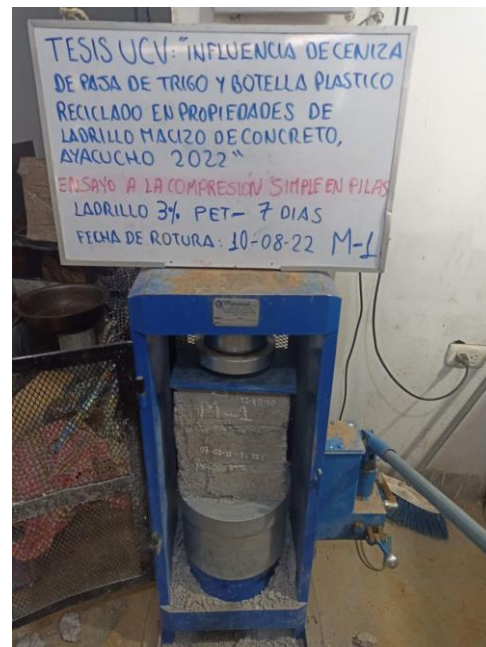 TESIS UCV: "INFLUENCIA DE CENIZA
DE PAJA DE TRIGO Y BOTELLA PLASTICO
RECICLADO EN PROPIEDADES DE
LADRILLO MACIZO DE CONCRETO,
AYACUCHO 2022"
ENSAYO A LA COMPRESIÓN SIMPLE EN PILAS
LADRILLO 3% PET- 7 DIAS
FECHA DE ROTURA: 10-08-22 M-1
M-1